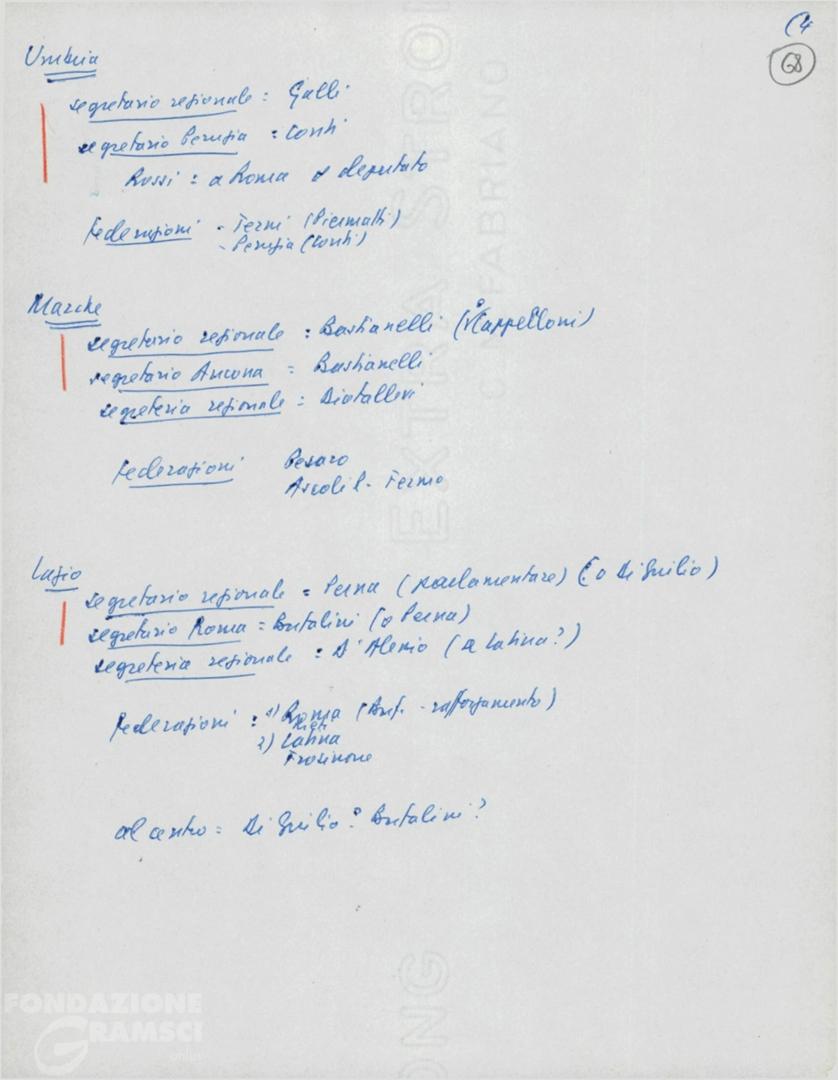 (4
68
Umbria
segretario regionale : Galli
segretario Perugia : Conti
Rossi : a Roma o deputato
Federazioni - Terni (Piermatti)
- Perugia (Conti)
Marche
segretario regionale : Bastianelli (Cappelloni)
segretario Ancona = Bastianelli
segreteria regionale = Diotallevi
Federazioni Pesaro
Ascoli P. - Fermo
Lazio
segretario regionale = Perna (parlamentare) (o Di Giulio)
segretario Roma = Bufalini (o Perna)
segreteria regionale : D'Alessio (a Latina?)
Federazioni : 1) Roma ( - rafforzamento)
Rieti
2) Latina
Frosinone
al centro = Di Giulio? Bufalini?
EXTRA STRONG
FABRIANO
FONDAZIONE
GRAMSCI
onlus